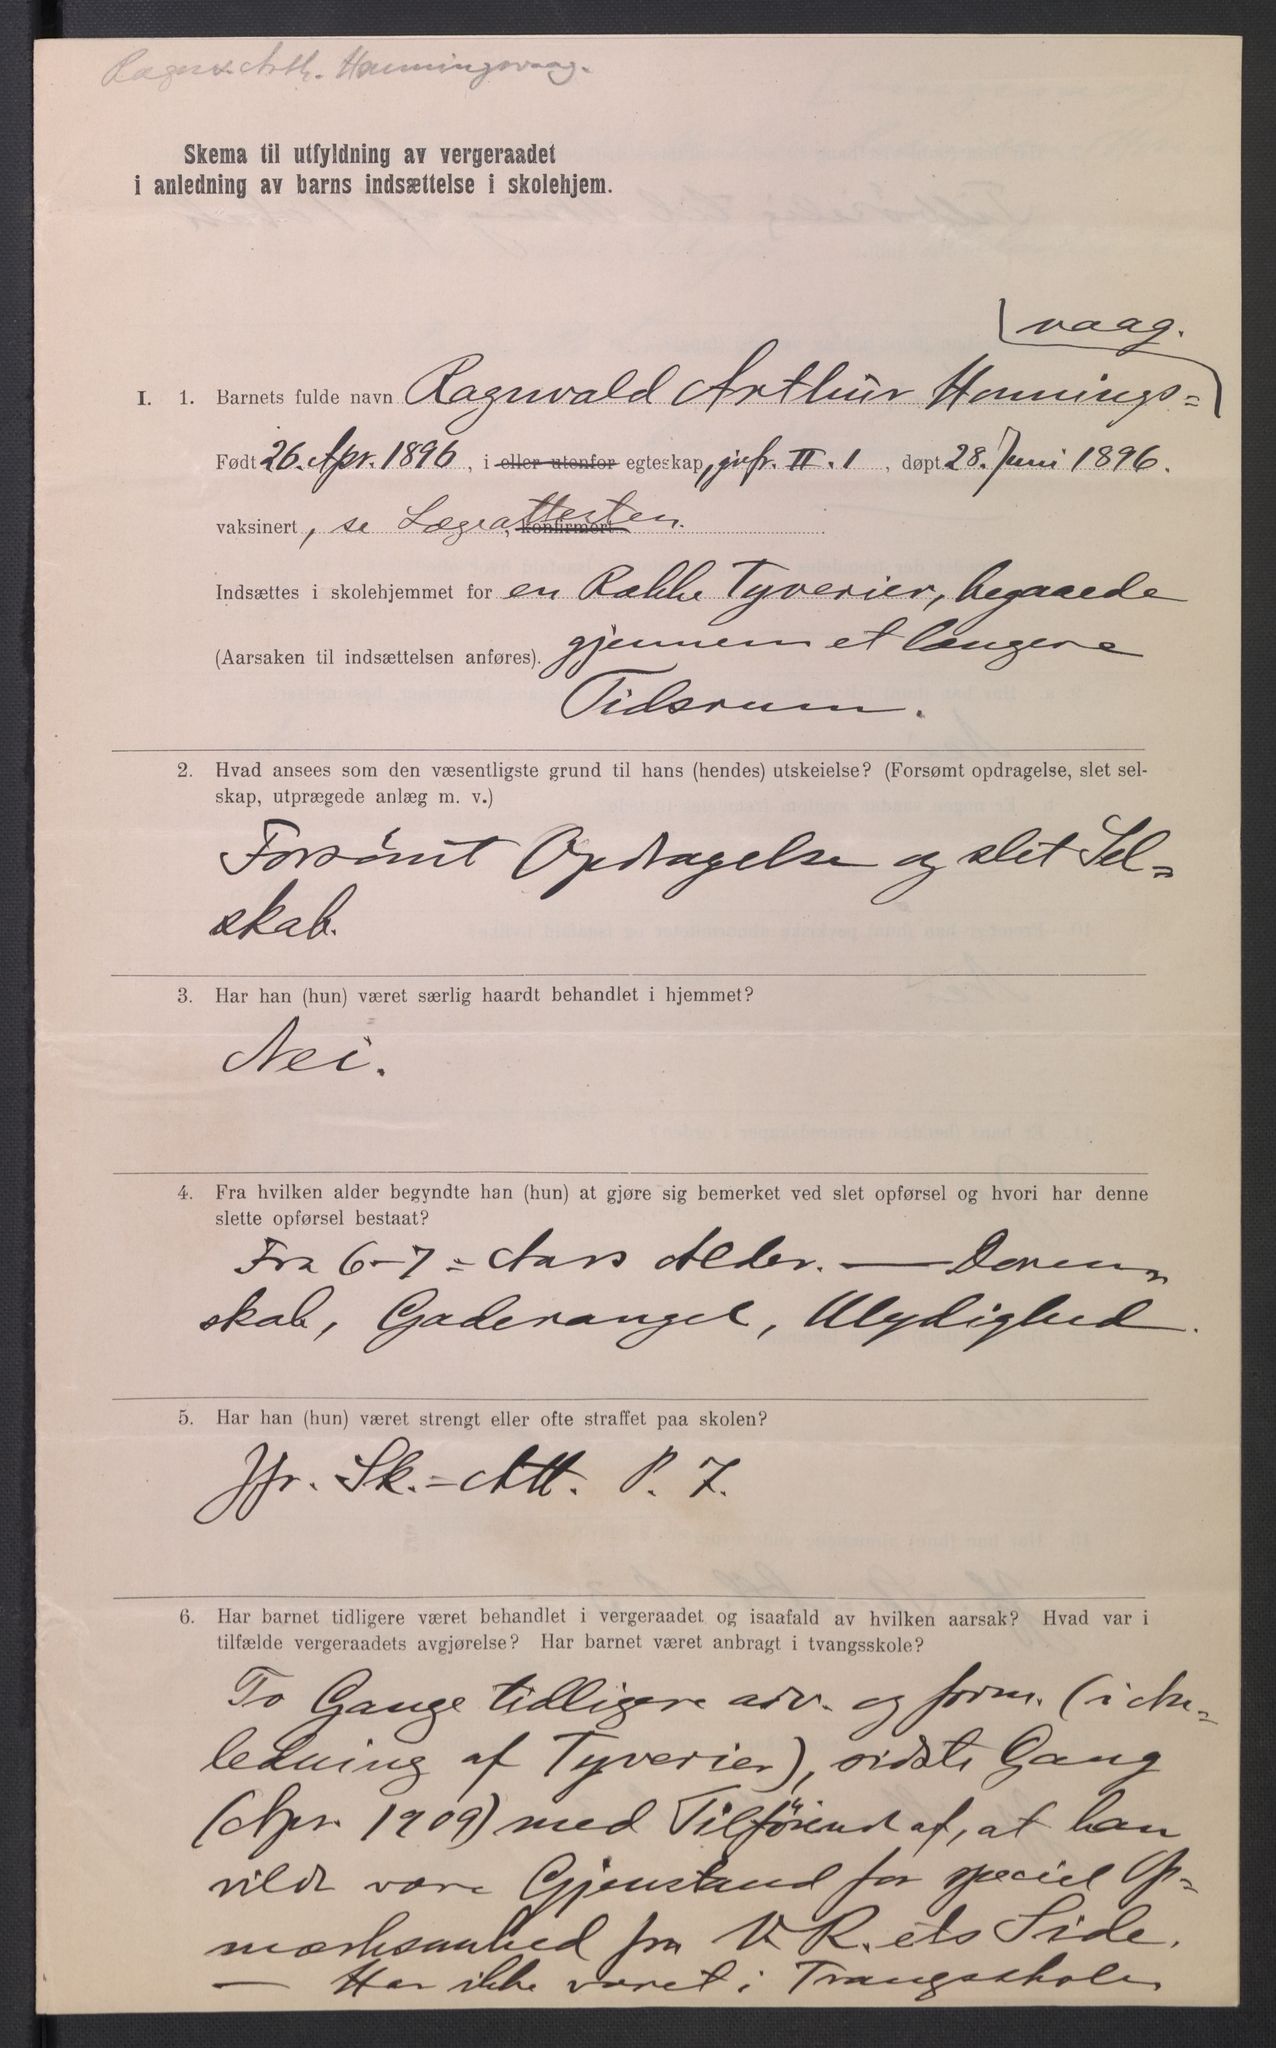 Ragnv. Arth. Honningsvaag.
Skema til utfyldning av vergeraadet
i anledning av barns indsættelse i skolehjem.
vaag.
I. 1. Barnets fulde navn Ragnvald Arthur Honnings=
Født 26. Apr. 1896, i eller utenfor egteskap, jvfr. II. 1, døpt 28. Juni 1896.
vaksinert, se Lægeattesten. konfirmert
Indsættes i skolehjemmet for en Række Tyverier, begaaede
(Aarsaken til indsættelsen anføres). gjennem et længere
Tidsrum.
2. Hvad ansees som den væsentligste grund til hans (hendes) utskeielse? (Forsømt opdragelse, slet sel-
skap, utprægede anlæg m. v.)
Forsömt Opdragelse og slet Sel=
skab.
3. Har han (hun) været særlig haardt behandlet i hjemmet?
Nei.
4. Fra hvilken alder begyndte han (hun) at gjøre sig bemerket ved slet opførsel og hvori har denne
slette opførsel bestaat?
Fra 6-7 = Aars Alder. — Doven=
skab, Gaderangel, Ulydighed.
5. Har han (hun) været strengt eller ofte straffet paa skolen?
Jfr. Sk.=Att. P. 7.
6. Har barnet tidligere været behandlet i vergeraadet og isaafald av hvilken aarsak? Hvad var i
tilfælde vergeraadets avgjørelse? Har barnet været anbragt i tvangsskole?
To Gange tidligere adv. og form. (i An=
ledning af Tyverier), sidste Gang
(Apr. 1909) med Tilföiende af, at han
vilde være Gjenstand for speciel Op=
mærksomhed fra V. R.ets Side.
— Har ikke været i Tvangsskole.